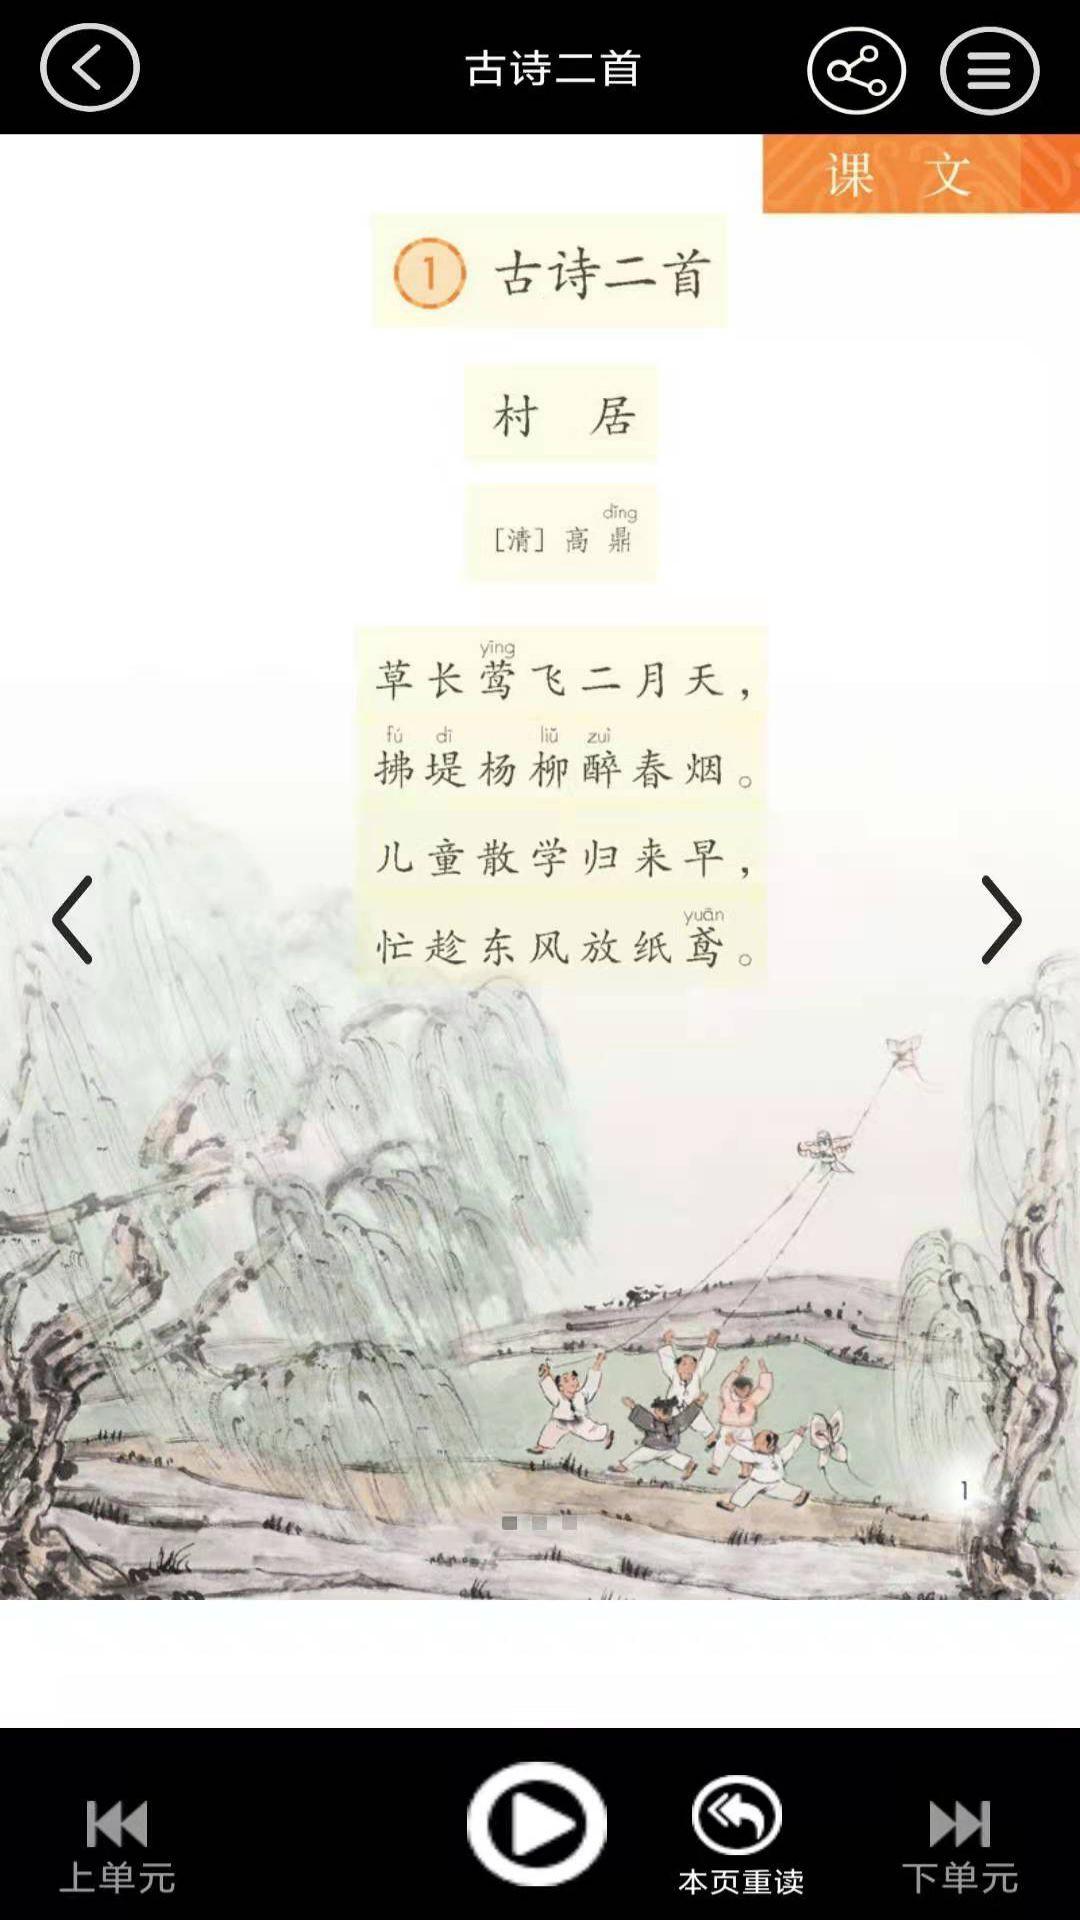 古诗二首
课 文
1 古诗二首
村 居
dǐng
[清] 高 鼎
yīng
草长莺飞二月天，
fú dī liǔ zuì
拂堤杨柳醉春烟。
儿童散学归来早，
yuān
忙趁东风放纸鸢。
1
上单元 本页重读 下单元